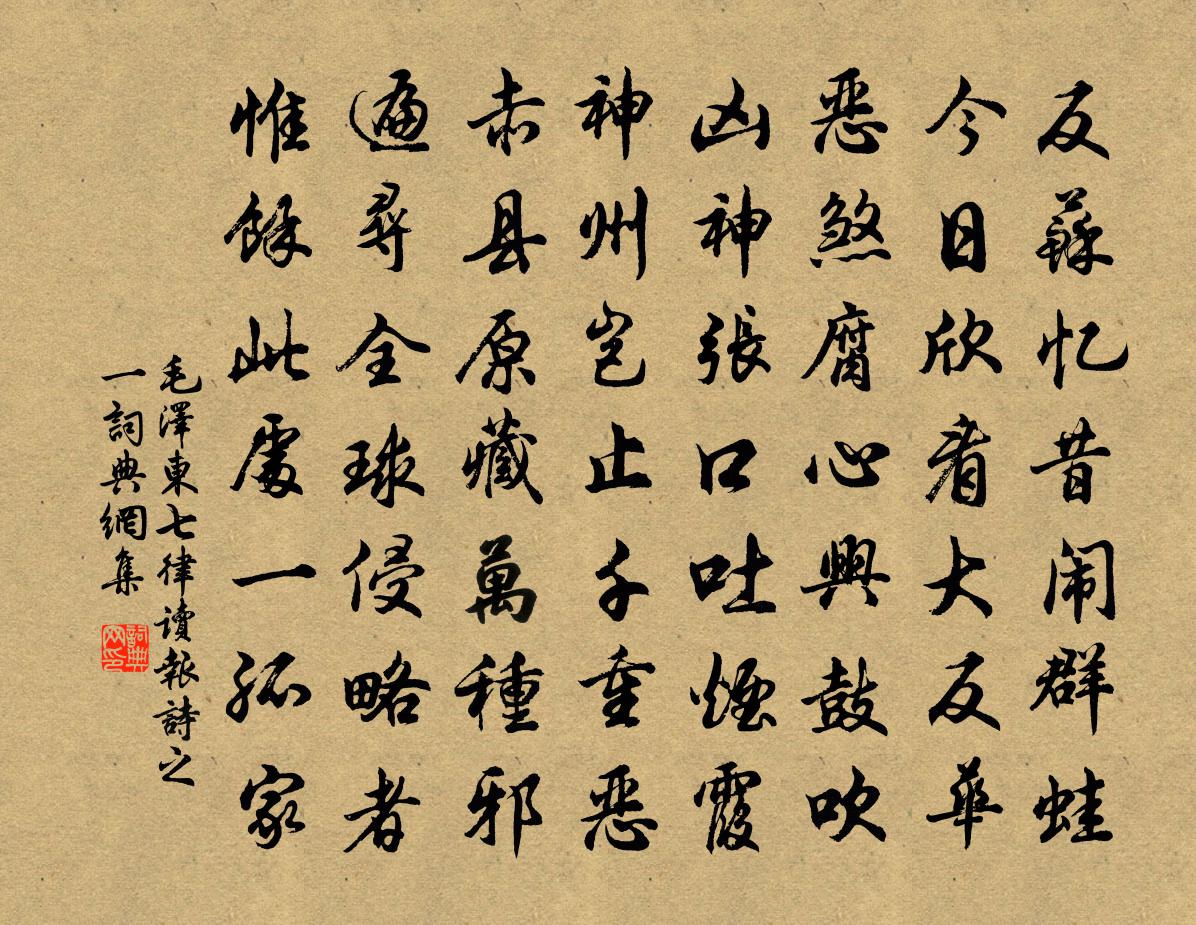 反蘇忆昔闹群蛙
今日欣看大反華
恶煞腐心興鼓吹
凶神張口吐煙霞
神州岂止千重恶
赤县原藏萬種邪
遍尋全球侵略者
惟餘此處一孤家
毛澤東七律讀報詩之
一詞典網集
詞典网印